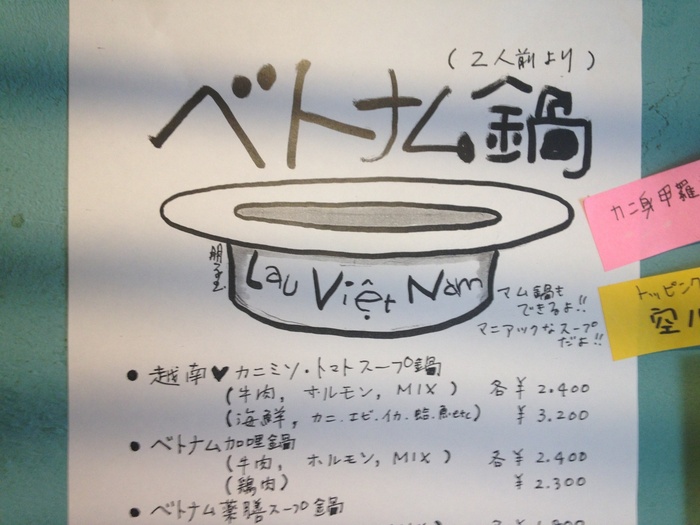 (2人前より)
ベトナム鍋
Lau Việt Nam
マム鍋も
できるよ!!
マニアックなスープ
だよ!!
カニ身甲羅
トッピング
• 越南♥カニミソ・トマトスープ鍋
(牛肉, ホルモン, MIX) 各¥2.400
(海鮮, カニ.エビ.イカ.蛤.魚.etc) ¥3.200
• ベトナム咖哩鍋
(牛肉, ホルモン, MIX) 各¥2.400
(鶏肉) ¥2.300
• ベトナム薬膳スープ鍋